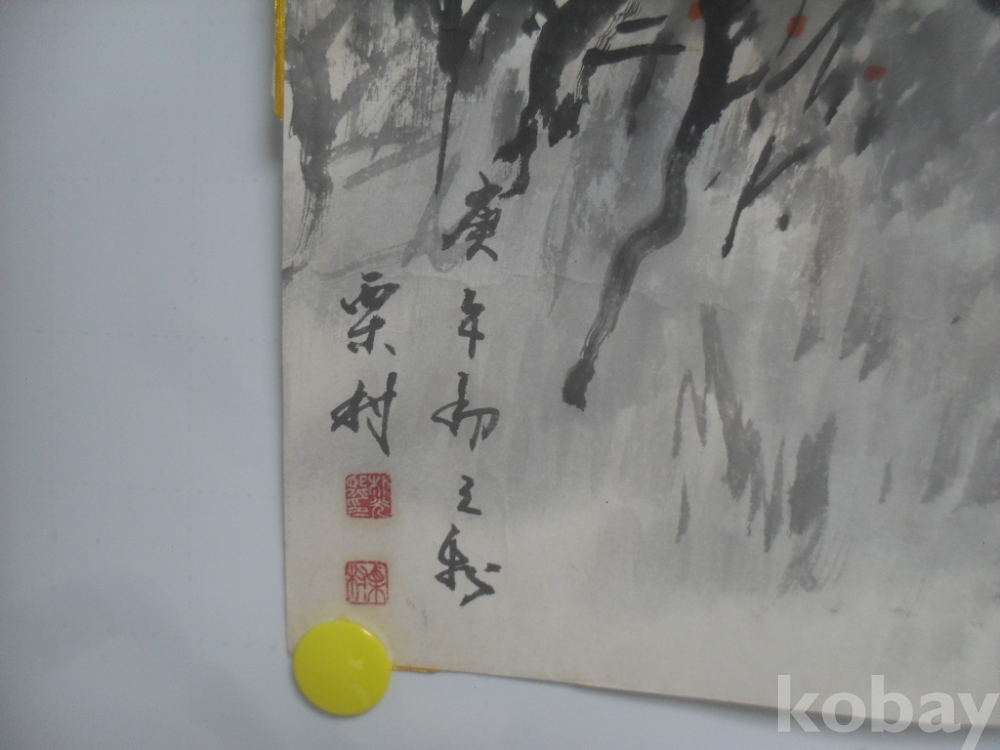 庚午初之秋
栗村
栗村
kobay